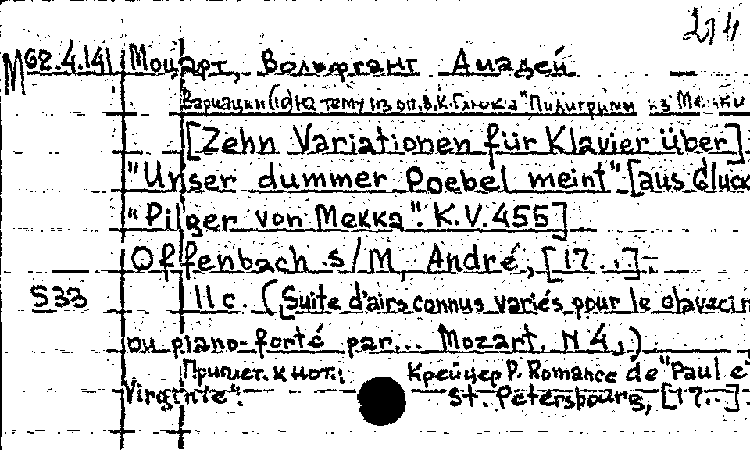 274
M 62.4.141 Моцарт, Вольфганг Амадей
Вариации (10) на тему из оп. В.К. Глюка "Пилигримы из Мекки
[Zehn Variationen für Klavier über]
"Unser dummer Poebel meint" [aus Gluck
"Pilger von Mekka". K.V. 455]
Offenbach s/M, André, [17..].
S33 11 c. (Suite d'airs connus variés pour le clavecin
ou piano-forté par... Mozart. N 4,)
Приплет. к нот.: Крейцер Р. Romance de "Paul e
Virginie". St. Petersbourg, [17..]